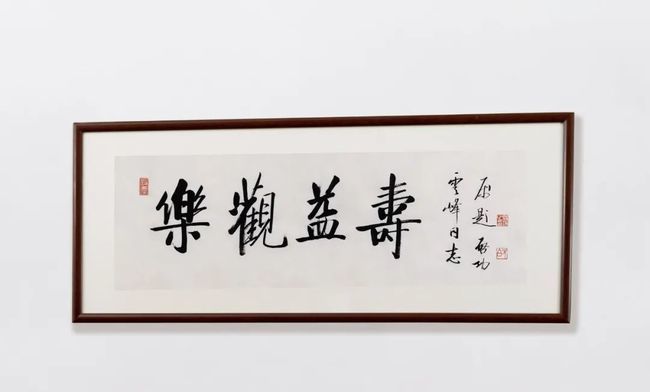 樂觀益壽
雲峰同志
属題 啟功